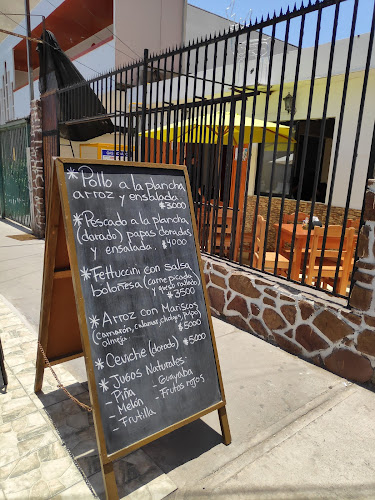 * Pollo a la plancha
arroz y ensalada
$3000
* Pescado a la plancha
(dorado) papas doradas
y ensalada. $4000
* Fettuccini con salsa
boloñesa (carne picada
y queso rallado)
$3500
* Arroz con Mariscos
(camarón, calamar,
almeja) $5000
* Ceviche (dorado) $5000
* Jugos Naturales:
- Piña - Guayaba
- Melón - Frutos rojos
- Frutilla